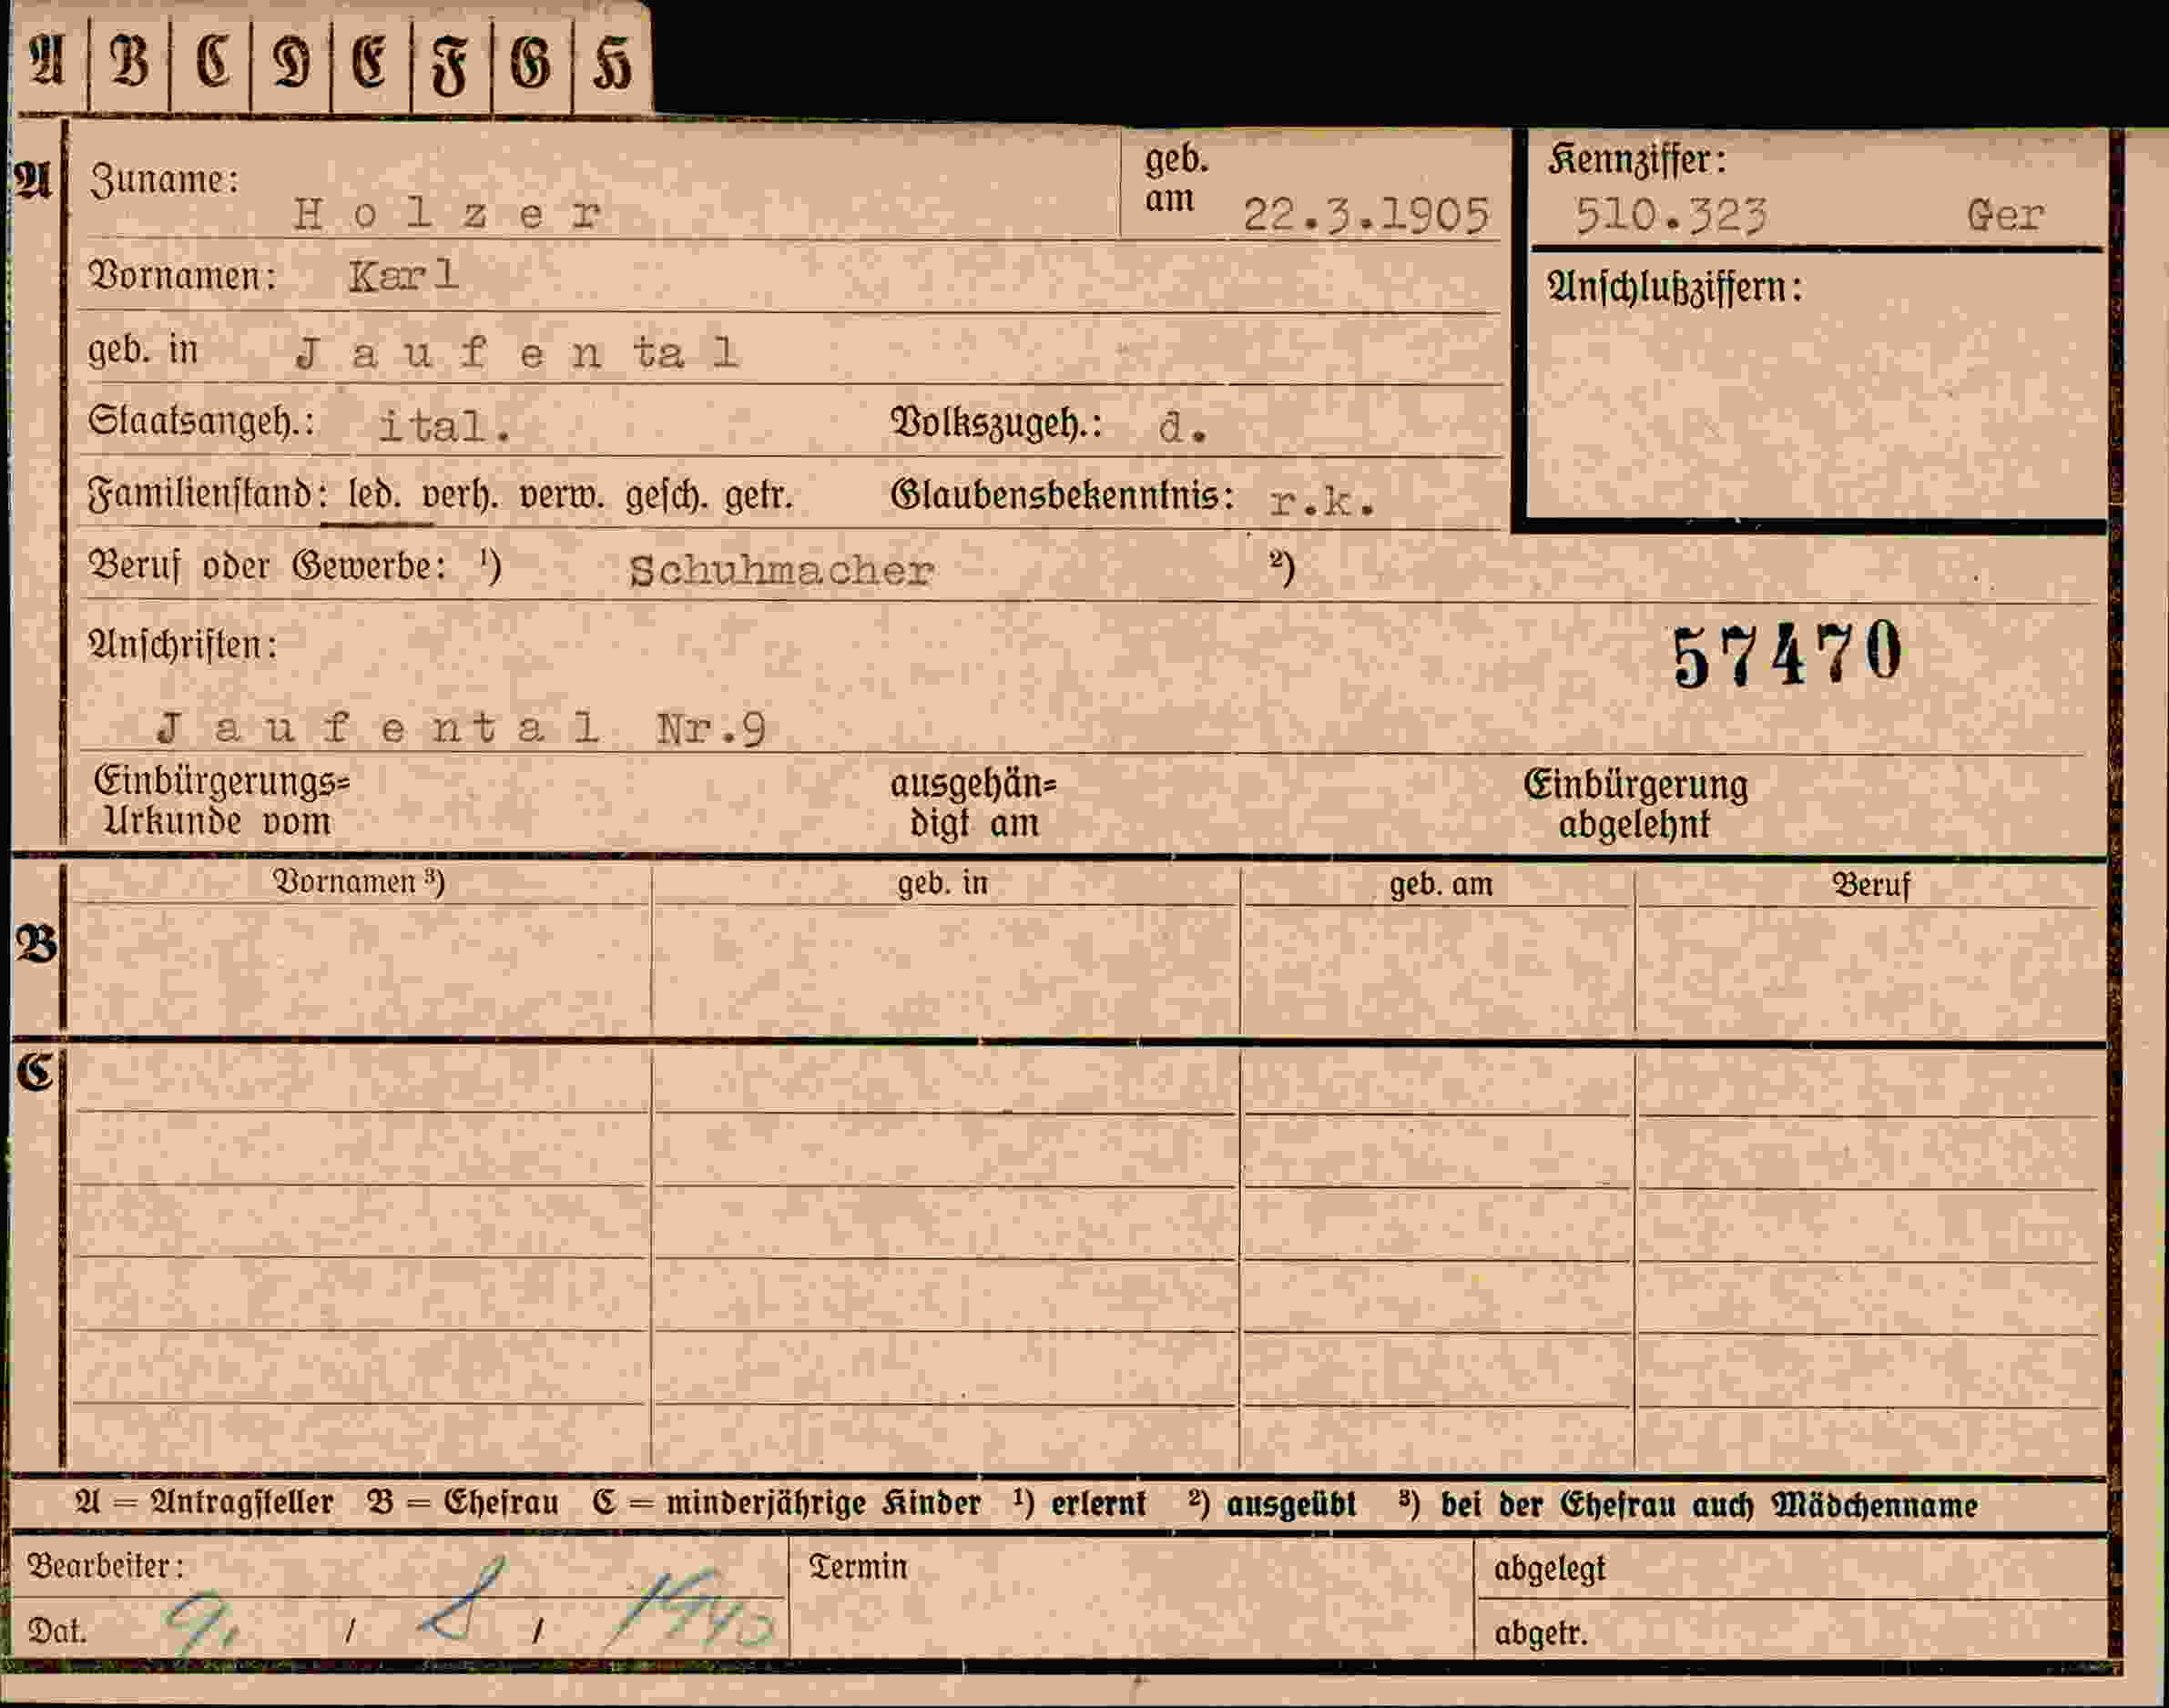 A B C D E F G H
A Zuname: Holzer geb. am 22.3.1905 Kennziffer: 510.323 Ger
Vornamen: Karl Anschlußziffern:
geb. in Jaufental
Staatsangeh.: ital. Volkszugeh.: d.
Familienstand: led. verh. verw. gesch. getr. Glaubensbekenntnis: r.k.
Beruf oder Gewerbe: ¹) Schuhmacher ²)
Anschriften: 57470
Jaufental Nr.9
Einbürgerungs= ausgehän= Einbürgerung
Urkunde vom digt am abgelehnt
Vornamen ³) geb. in geb. am Beruf
B
C
A = Antragsteller B = Ehefrau C = minderjährige Kinder ¹) erlernt ²) ausgeübt ³) bei der Ehefrau auch Mädchenname
Bearbeiter: Termin abgelegt
Dat. 9. / 8 / 1940 abgetr.